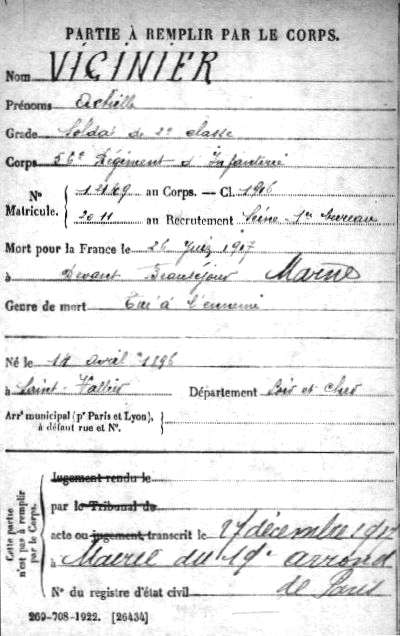 PARTIE À REMPLIR PAR LE CORPS.
Nom VIGINIER
Prénoms Achille
Grade Soldat de 2e classe
Corps 56e Régiment d'Infanterie
No Matricule. { 12169 au Corps. — Cl. 1916
2011 au Recrutement Seine - 1er Bureau
Mort pour la France le 26 Juin 1917
à Devant Beauséjour Marne
Genre de mort Tué à l'ennemi
Né le 14 avril 1896
à Saint-Vallier Département Loir et Cher
Arrt municipal (pr Paris et Lyon), à défaut rue et No.
Cette partie n'est pas à remplir par le Corps.
Jugement rendu le
par le Tribunal de
acte ou jugement transcrit le 27 décembre 1917
à Mairie du 19e arrond
de Paris
No du registre d'état civil
269-708-1922. [26434]